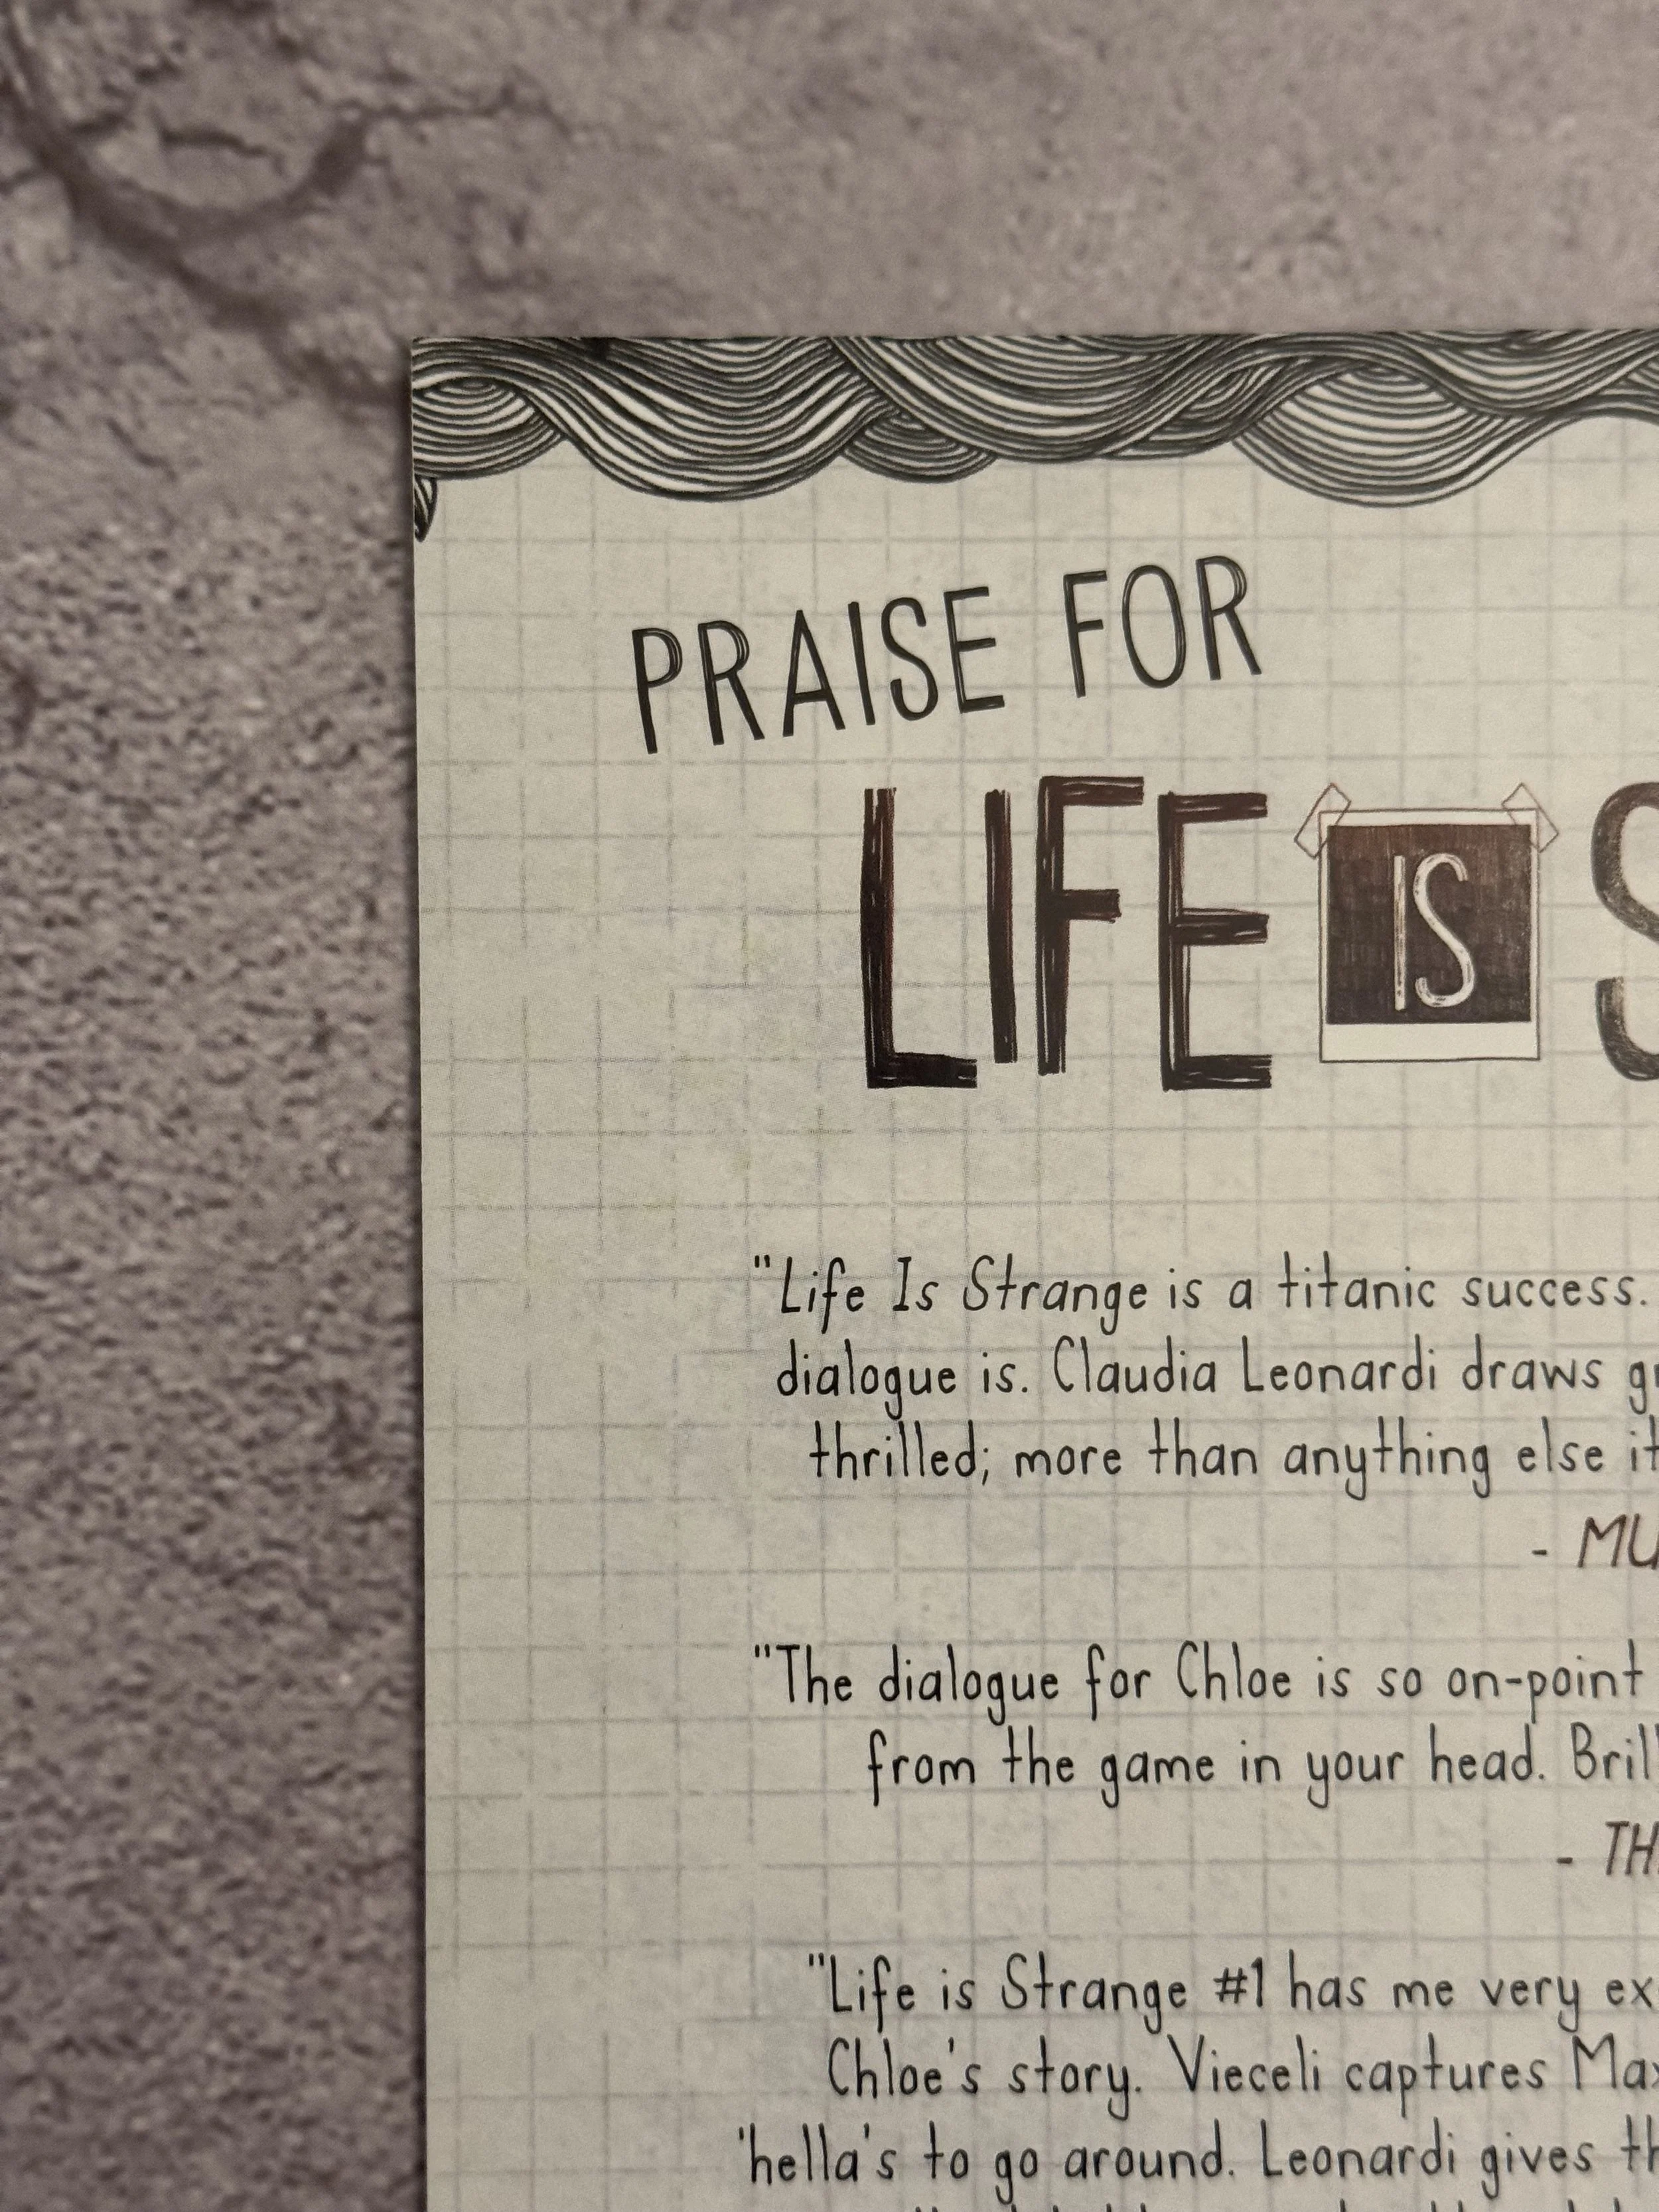 PRAISE FOR
LIFE IS S
"Life Is Strange is a titanic success.
dialogue is. Claudia Leonardi draws
thrilled; more than anything else it
- MU
"The dialogue for Chloe is so on-point
from the game in your head.
- TH
"Life is Strange #1 has me very
Chloe's story. Vieceli captures Max
'hella's to go around. Leonardi gives